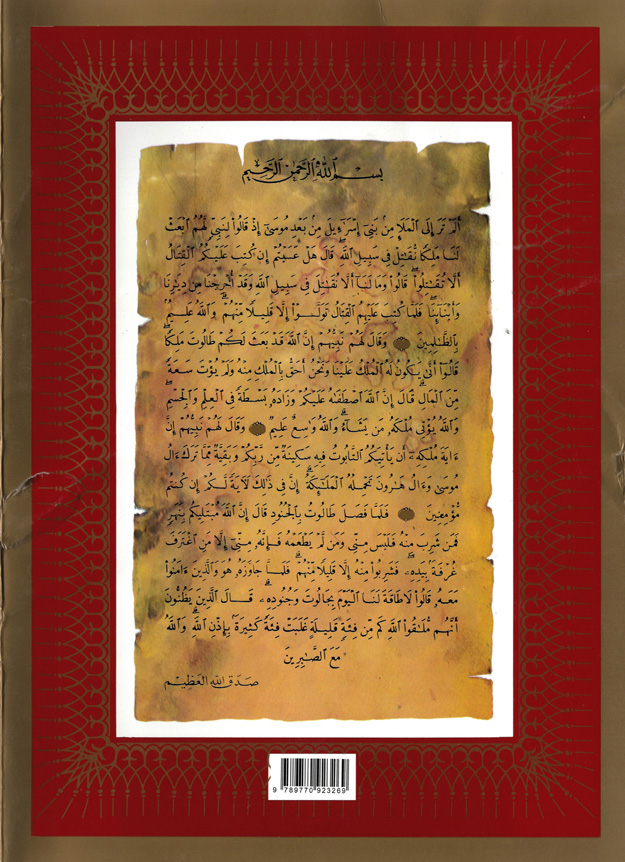 بِسْمِ ٱللَّهِ ٱلرَّحْمَٰنِ ٱلرَّحِيمِ
أَلَمْ تَرَ إِلَى ٱلْمَلَإِ مِنۢ بَنِىٓ إِسْرَٰٓءِيلَ مِنۢ بَعْدِ مُوسَىٰٓ إِذْ قَالُوا۟ لِنَبِىٍّ لَّهُمُ ٱبْعَثْ
لَنَا مَلِكًا نُّقَٰتِلْ فِى سَبِيلِ ٱللَّهِ ۖ قَالَ هَلْ عَسَيْتُمْ إِن كُتِبَ عَلَيْكُمُ ٱلْقِتَالُ
أَلَّا تُقَٰتِلُوا۟ ۖ قَالُوا۟ وَمَا لَنَآ أَلَّا نُقَٰتِلَ فِى سَبِيلِ ٱللَّهِ وَقَدْ أُخْرِجْنَا مِن دِيَٰرِنَا
وَأَبْنَآئِنَا ۖ فَلَمَّا كُتِبَ عَلَيْهِمُ ٱلْقِتَالُ تَوَلَّوْا۟ إِلَّا قَلِيلًا مِّنْهُمْ ۗ وَٱللَّهُ عَلِيمٌۢ
بِٱلظَّٰلِمِينَ وَقَالَ لَهُمْ نَبِيُّهُمْ إِنَّ ٱللَّهَ قَدْ بَعَثَ لَكُمْ طَالُوتَ مَلِكًا ۚ
قَالُوٓا۟ أَنَّىٰ يَكُونُ لَهُ ٱلْمُلْكُ عَلَيْنَا وَنَحْنُ أَحَقُّ بِٱلْمُلْكِ مِنْهُ وَلَمْ يُؤْتَ سَعَةً
مِّنَ ٱلْمَالِ ۚ قَالَ إِنَّ ٱللَّهَ ٱصْطَفَىٰهُ عَلَيْكُمْ وَزَادَهُۥ بَسْطَةً فِى ٱلْعِلْمِ وَٱلْجِسْمِ ۖ
وَٱللَّهُ يُؤْتِى مُلْكَهُۥ مَن يَشَآءُ ۚ وَٱللَّهُ وَٰسِعٌ عَلِيمٌ وَقَالَ لَهُمْ نَبِيُّهُمْ إِنَّ
ءَايَةَ مُلْكِهِۦٓ أَن يَأْتِيَكُمُ ٱلتَّابُوتُ فِيهِ سَكِينَةٌ مِّن رَّبِّكُمْ وَبَقِيَّةٌ مِّمَّا تَرَكَ ءَالُ
مُوسَىٰ وَءَالُ هَٰرُونَ تَحْمِلُهُ ٱلْمَلَٰٓئِكَةُ ۚ إِنَّ فِى ذَٰلِكَ لَءَايَةً لَّكُمْ إِن كُنتُم
مُّؤْمِنِينَ فَلَمَّا فَصَلَ طَالُوتُ بِٱلْجُنُودِ قَالَ إِنَّ ٱللَّهَ مُبْتَلِيكُم بِنَهَرٍ
فَمَن شَرِبَ مِنْهُ فَلَيْسَ مِنِّى وَمَن لَّمْ يَطْعَمْهُ فَإِنَّهُۥ مِنِّىٓ إِلَّا مَنِ ٱغْتَرَفَ
غُرْفَةًۢ بِيَدِهِۦ ۚ فَشَرِبُوا۟ مِنْهُ إِلَّا قَلِيلًا مِّنْهُمْ ۚ فَلَمَّا جَاوَزَهُۥ هُوَ وَٱلَّذِينَ ءَامَنُوا۟
مَعَهُۥ قَالُوا۟ لَا طَاقَةَ لَنَا ٱلْيَوْمَ بِجَالُوتَ وَجُنُودِهِۦ ۚ قَالَ ٱلَّذِينَ يَظُنُّونَ
أَنَّهُم مُّلَٰقُوا۟ ٱللَّهِ كَم مِّن فِئَةٍ قَلِيلَةٍ غَلَبَتْ فِئَةً كَثِيرَةًۢ بِإِذْنِ ٱللَّهِ ۗ وَٱللَّهُ
مَعَ ٱلصَّٰبِرِينَ
صدق الله العظيم
9 789770 923269